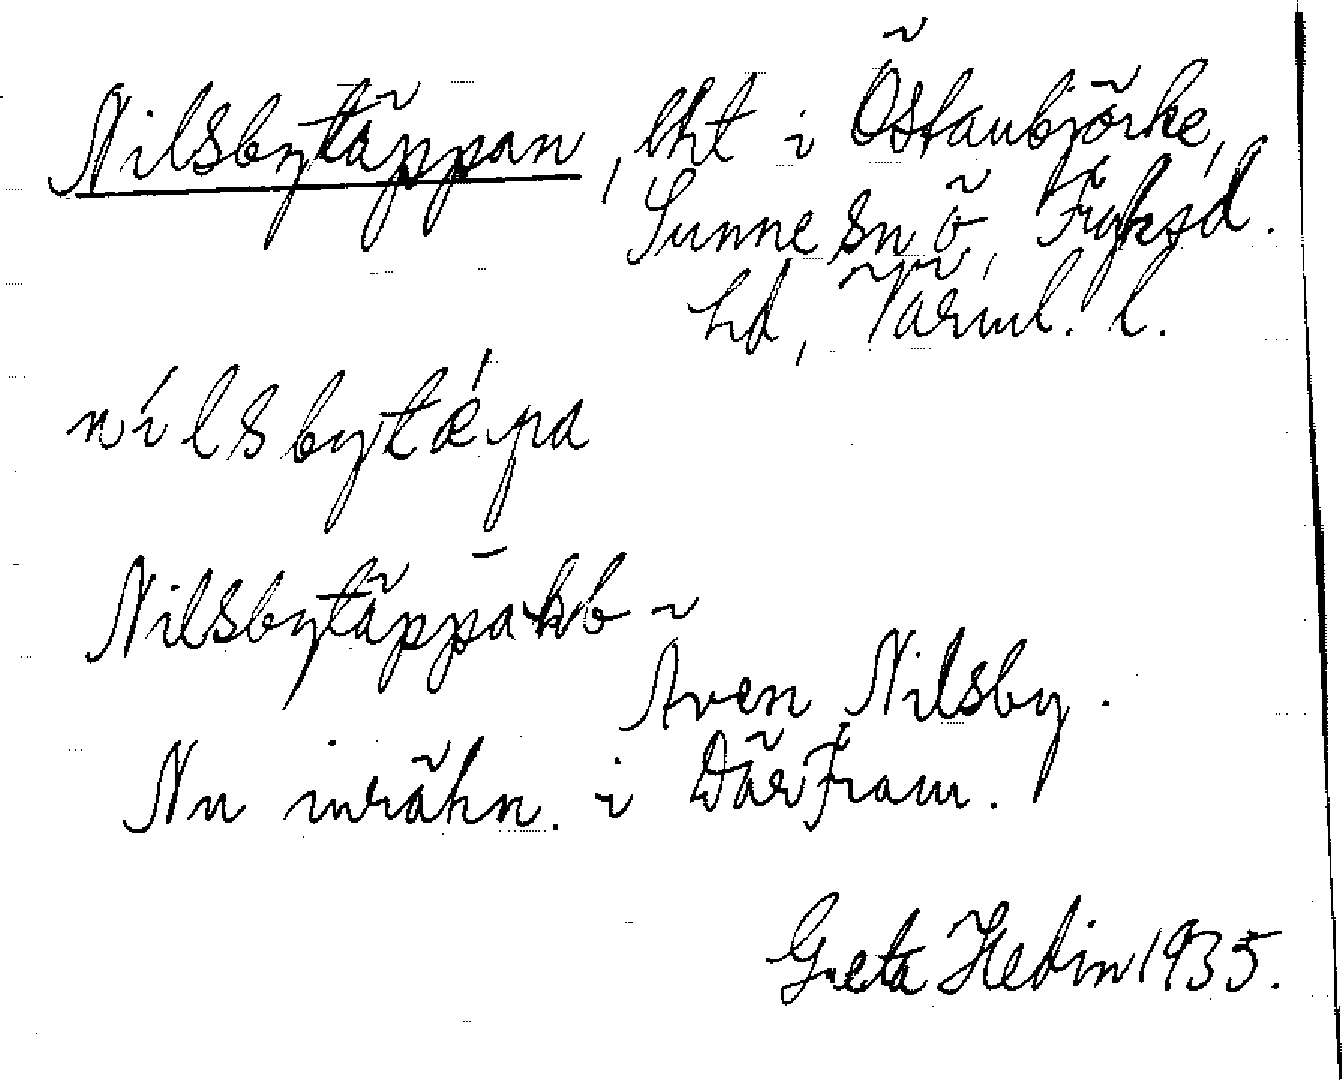 Nilsbytäppan, lht i Östanbjörke,
Sunne sn ö, Fryksd.
hd, Värml. l.
nílsbytǽpa
Nilsbytäppa
Även Nilsby.
Nu inräkn. i Där Fram.
Greta Hedin 1935.